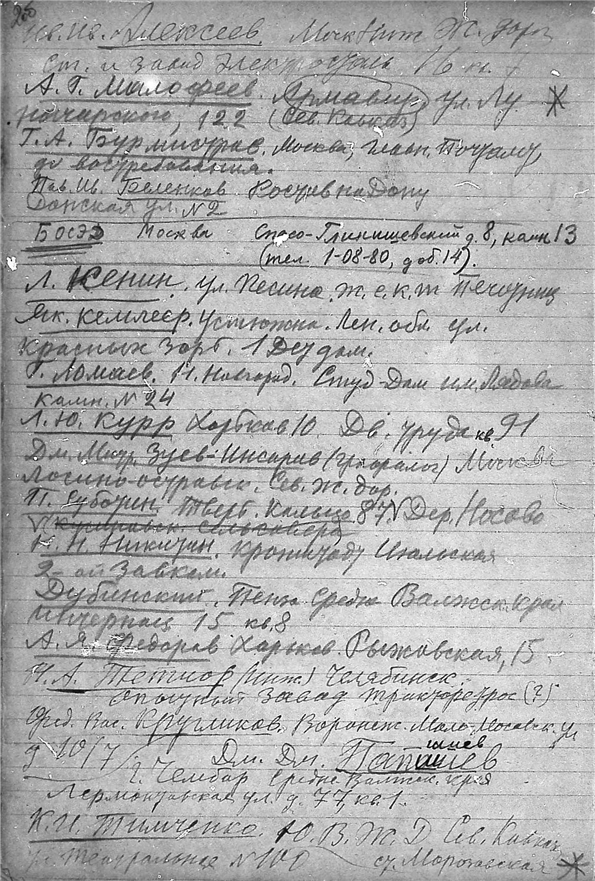 Ив. Ив. Алексеев. Моск Ниж Ж. дор
ст. и завод Электросталь 16
А. Г. Малофеев. Армавир ул. Лу
начарского, 122 (Сев. Кавказ)
Г. А. Бурмистров, Москва, Главн. Почтамт
до востребования.
Пав. Ив. Беленков Ростов на Дону
Донская ул. №2
БОСЭ Москва Спасо-Глинищевский д. 8, комн 13
(тел. 1-08-80, доб. 14).
Л. Кенин. ул. Песина. Ж. с. к. т
Як. Кемлеер. Устюжна. Лен. обл. ул.
Красных Зорь. 1 Дет дом.
Г. Ломаев. Н. Новгород. Студ-Дом им. Лядова
комн. №24
Л. Ю. Курр Харьков 10. Дв. Труда кв 91
Дм. Митр. Зуев-Инсаров (Графолог) Москва
Лосино-островск. Сев. Ж. дор.
П. Субочин. Тверь. Кольцо 87. Дер. Носово
сельсовета
Н. Н. Никитин. Кронштадт Июльская
2-ой Завком.
Дубинский. Пенза Средне Волжск. края
15 кв. 8
А. Я. Федоров Харьков. Рыжовская, 15.
Н. А. Тетиор (инж.) Челябинск.
Опытный завод (?)
Фед. Вас. Кругликов. Воронеж. Мало-Москов. ул
д 10/7
Дм. Дм. Папашев
г. Чембар Средне Волжск. края
Лермонтовская ул. д. 77, кв. 1.
К. И. Тимченко. Ю. В. Ж. Д Сев. Кавказ
ул. Театральное №101 ст. Морозовская